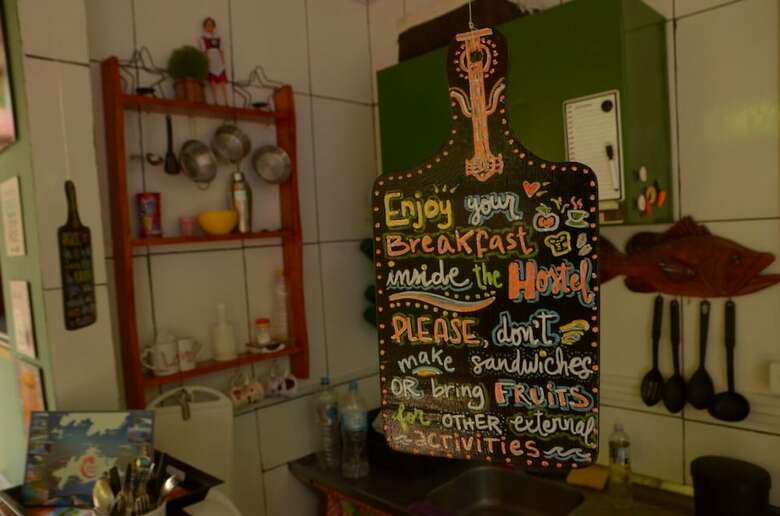 Enjoy your
Breakfast
inside the Hostel
PLEASE, don't
make sandwiches
OR bring FRUITS
for OTHER external
ACTIVITIES